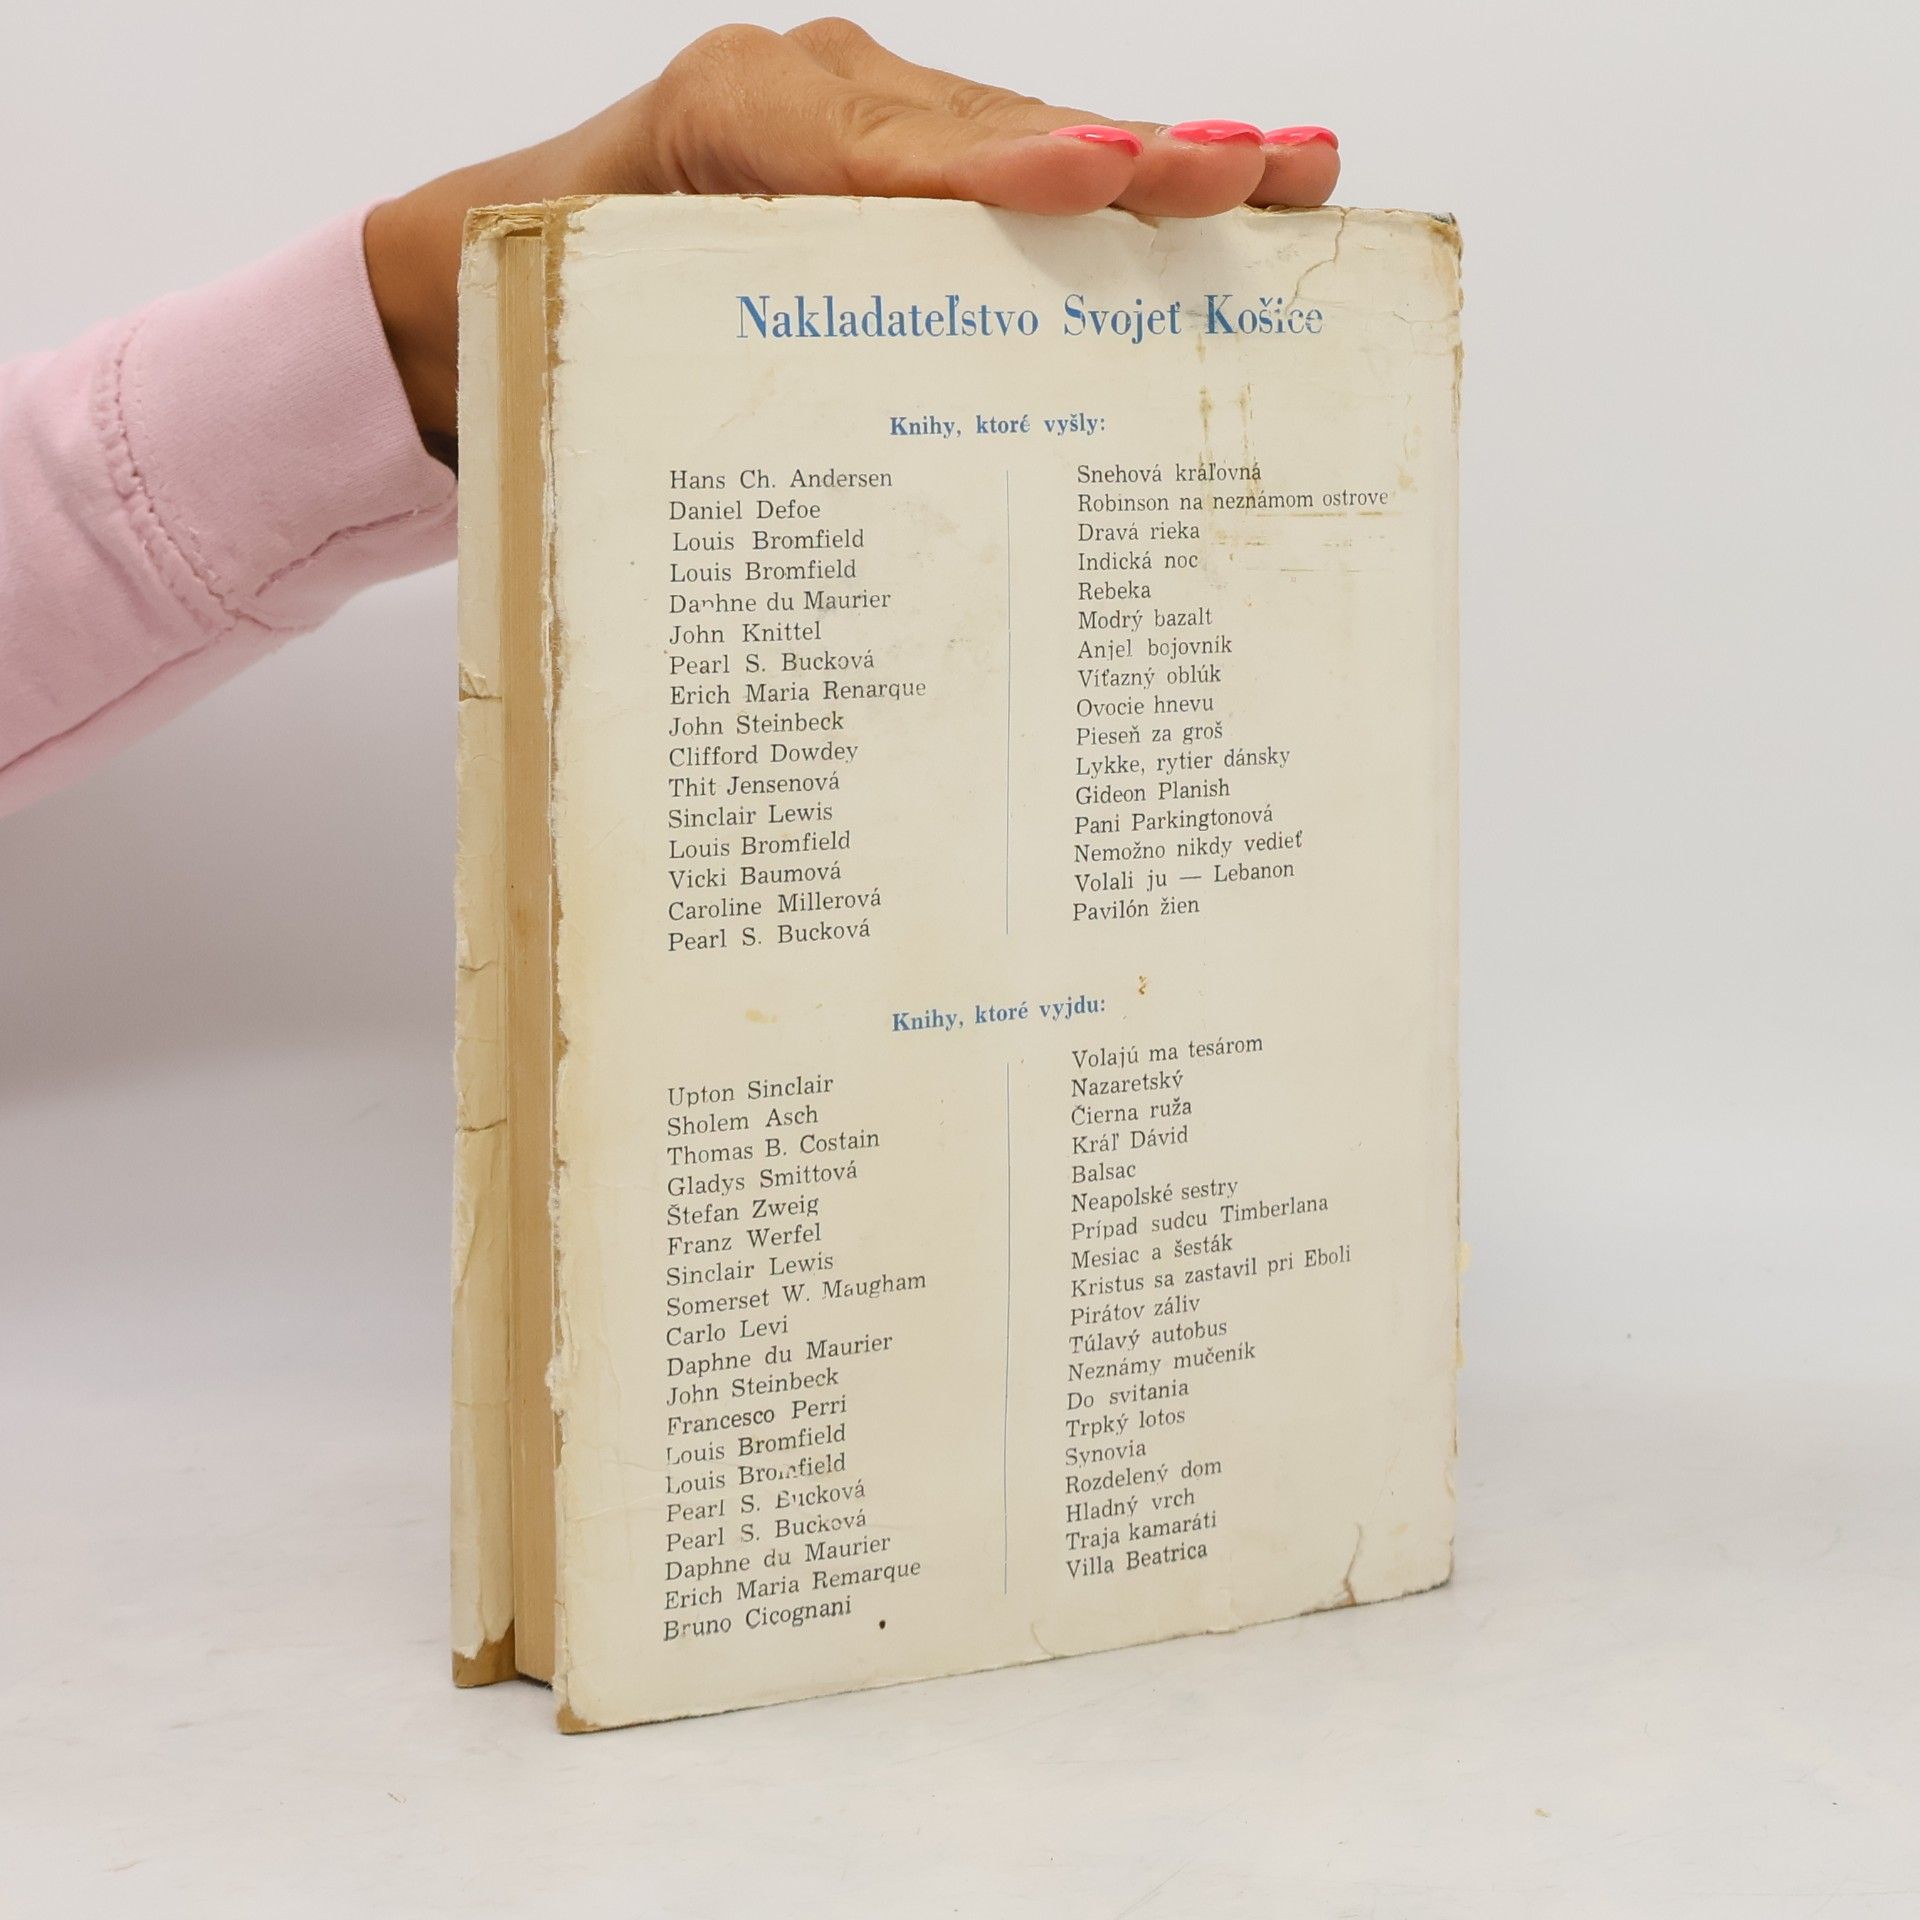 Nakladateľstvo Svojeť Košice
Knihy, ktoré vyšly:
Hans Ch. Andersen
Daniel Defoe
Louis Bromfield
Louis Bromfield
Daphne du Maurier
John Knittel
Pearl S. Bucková
Erich Maria Renarque
John Steinbeck
Clifford Dowdey
Thit Jensenová
Sinclair Lewis
Louis Bromfield
Vicki Baumová
Caroline Millerová
Pearl S. Bucková
Snehová kráľovná
Robinson na neznámom ostrove
Dravá rieka
Indická noc
Rebeka
Modrý bazalt
Anjel bojovník
Víťazný oblúk
Ovocie hnevu
Pieseň za groš
Lykke, rytier dánsky
Gideon Planish
Pani Parkingtonová
Nemožno nikdy vedieť
Volali ju — Lebanon
Pavilón žien
Knihy, ktoré vyjdu:
Upton Sinclair
Sholem Asch
Thomas B. Costain
Gladys Smittová
Štefan Zweig
Franz Werfel
Sinclair Lewis
Somerset W. Maugham
Carlo Levi
Daphne du Maurier
John Steinbeck
Francesco Perri
Louis Bromfield
Louis Bromfield
Pearl S. Bucková
Pearl S. Bucková
Daphne du Maurier
Erich Maria Remarque
Bruno Cicognani
Volajú ma tesárom
Nazaretský
Čierna ruža
Kráľ Dávid
Balsac
Neapolské sestry
Prípad sudcu Timberlana
Mesiac a šesták
Kristus sa zastavil pri Eboli
Pirátov záliv
Túlavý autobus
Neznámy mučeník
Do svitania
Trpký lotos
Synovia
Rozdelený dom
Hladný vrch
Traja kamaráti
Villa Beatrica